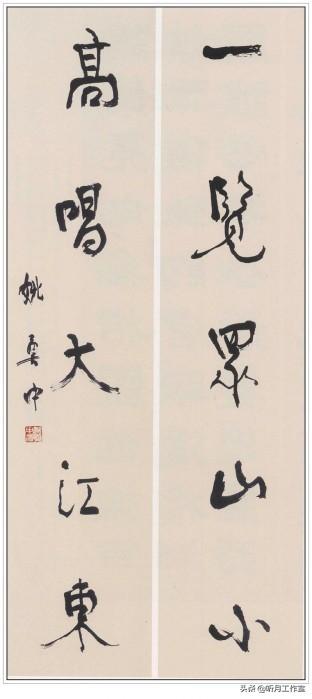 一覽眾山小
高唱大江東
姚奠中
头条@听月工作室